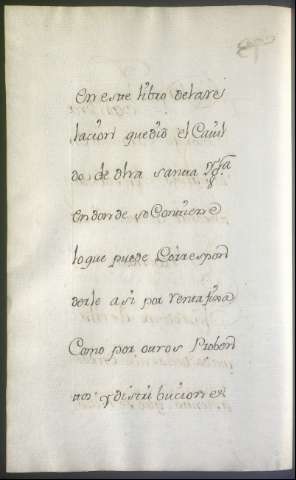 En este libro de la Re
lacion que dió el Cavil
do, de dha santa Ygª
en donde se Contiene
lo que puede Correspon
derle asi por renta fixa
Como por otros Proben
tos y distribuciones